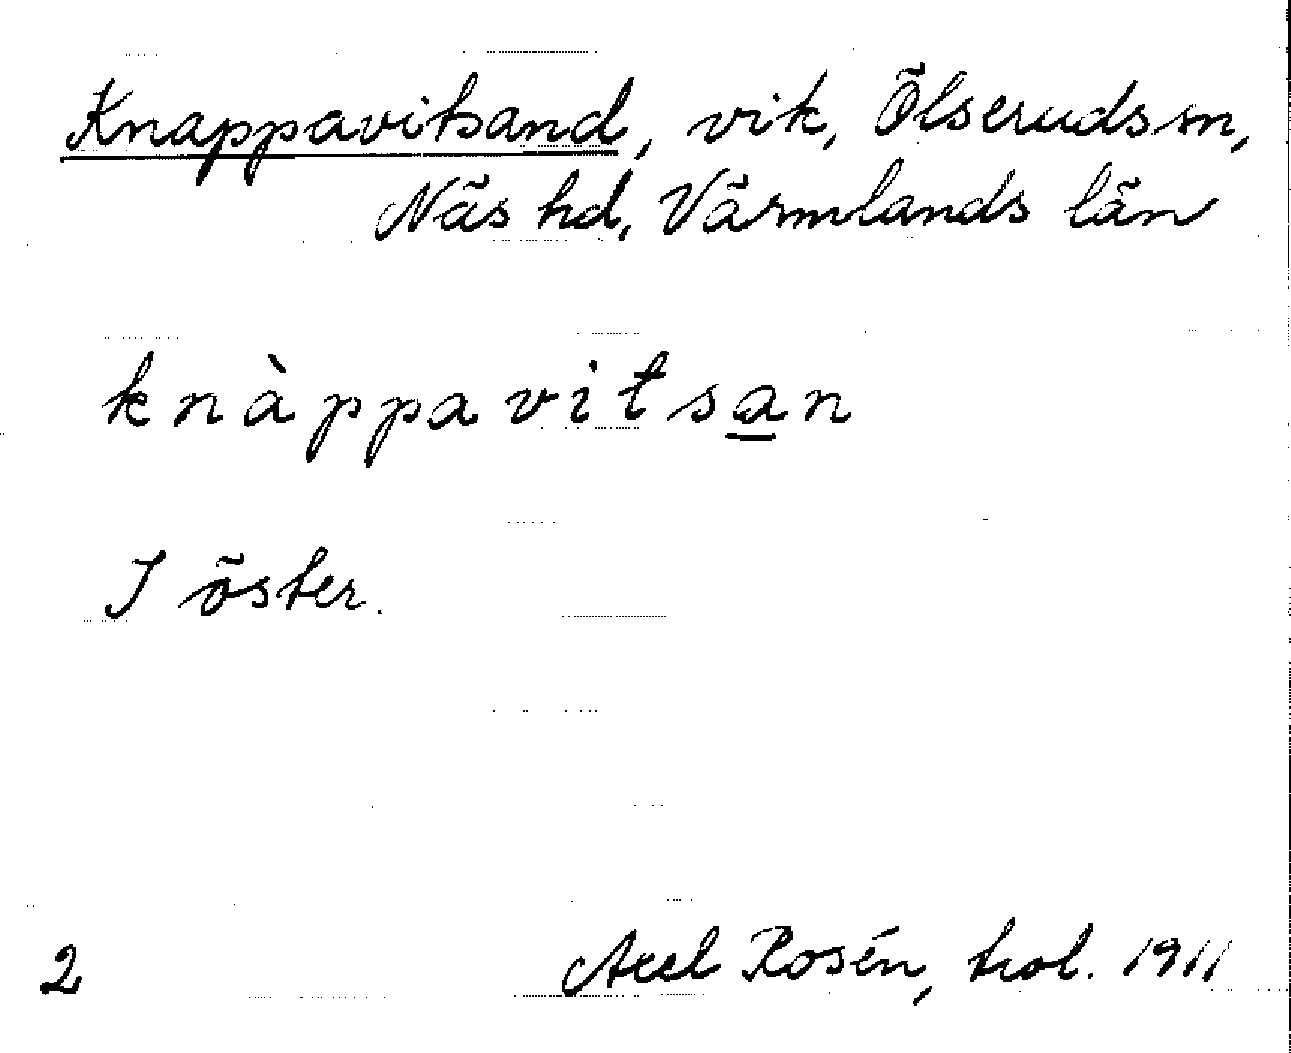 Knappavitsand, vik, Ölseruds sn,
Näs hd, Värmlands län
knàppavitsa̲n
I öster.
2 Axel Rosén, trol. 1911